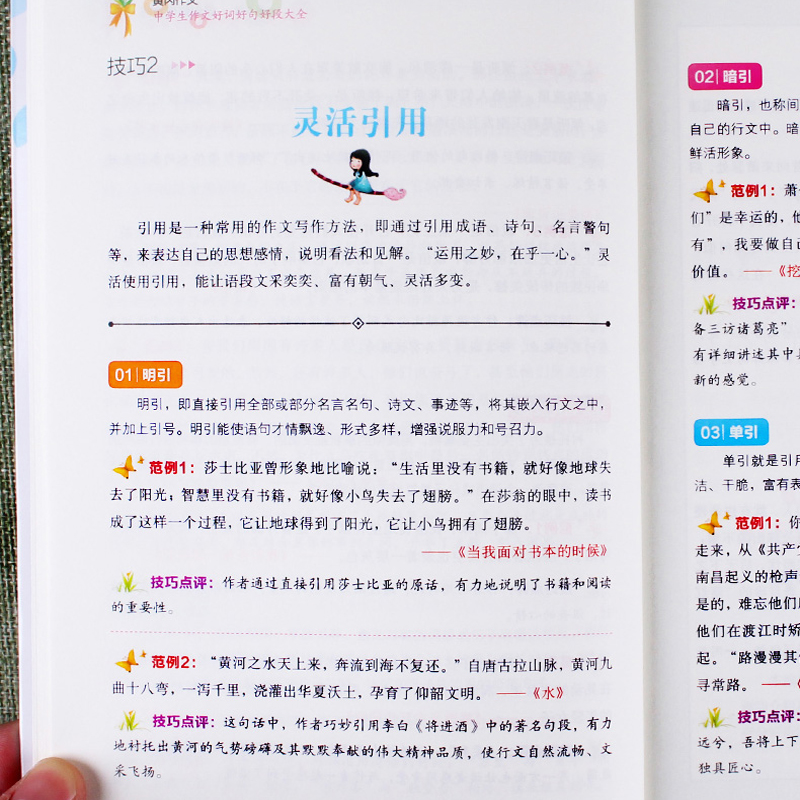 黄冈作文
中学生作文好词好句好段大全
技巧2
灵活引用
引用是一种常用的作文写作方法，即通过引用成语、诗句、名言警句
等，来表达自己的思想感情，说明看法和见解。“运用之妙，在乎一心。”灵
活使用引用，能让语段文采奕奕、富有朝气、灵活多变。
01 明引
明引，即直接引用全部或部分名言名句、诗文、事迹等，将其嵌入行文之中，
并加上引号。明引能使语句才情飘逸、形式多样，增强说服力和号召力。
范例1：莎士比亚曾形象地比喻说：“生活里没有书籍，就好像地球失
去了阳光；智慧里没有书籍，就好像小鸟失去了翅膀。”在莎翁的眼中，读书
成了这样一个过程，它让地球得到了阳光，它让小鸟拥有了翅膀。
——《当我面对书本的时候》
技巧点评：作者通过直接引用莎士比亚的原话，有力地说明了书籍和阅读
的重要性。
范例2：“黄河之水天上来，奔流到海不复还。”自唐古拉山脉，黄河九
曲十八弯，一泻千里，浇灌出华夏沃土，孕育了仰韶文明。——《水》
技巧点评：这句话中，作者巧妙引用李白《将进酒》中的著名句段，有力
地衬托出黄河的气势磅礴及其默默奉献的伟大精神品质，使行文自然流畅、文
采飞扬。
02 暗引
暗引，也称间
自己的行文中。暗
鲜活形象。
范例1：萧
们”是幸运的，他
有”，我要做自己
价值。——《挖
技巧点评：
备三访诸葛亮”
有详细讲述其中具
新的感觉。
03 单引
单引就是引用
洁、干脆，富有表
范例1：你
走来，从《共产党
南昌起义的枪声
是的，难忘他们
他们在渡江时矫
起。“路漫漫其
寻常路。——《
技巧点评：
远兮，吾将上下
独具匠心。